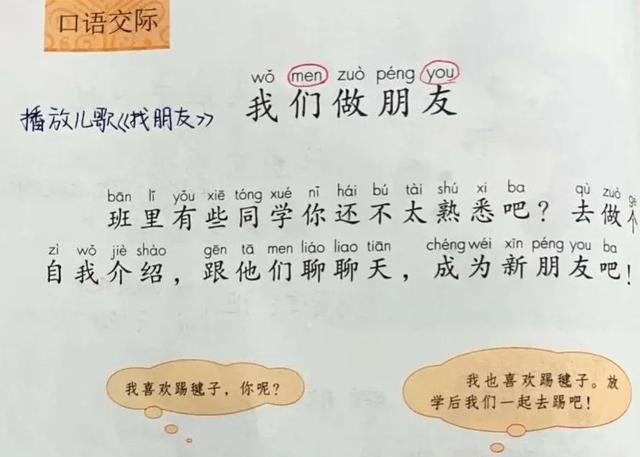 口语交际
wǒ men zuò péng you
我们做朋友
播放儿歌《找朋友》
bān lǐ yǒu xiē tóng xué nǐ hái bú tài shú xi ba qù zuò ge
班里有些同学你还不太熟悉吧？去做个
zì wǒ jiè shào gēn tā men liáo liao tiān chéng wéi xīn péng you ba
自我介绍，跟他们聊聊天，成为新朋友吧！
我喜欢踢毽子，你呢？
我也喜欢踢毽子。放
学后我们一起去踢吧！